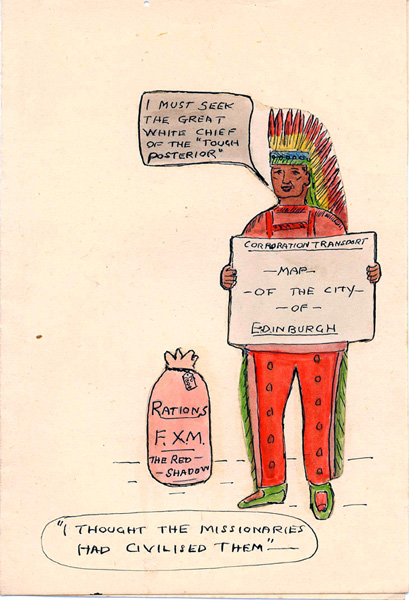 I MUST SEEK
THE GREAT
WHITE CHIEF
OF THE "TOUGH
POSTERIOR"
CORPORATION TRANSPORT
—MAP—
—OF THE CITY—
—OF—
EDINBURGH
RATIONS
F.X.M.
THE RED—
—SHADOW
"I THOUGHT THE MISSIONARIES
HAD CIVILISED THEM"—